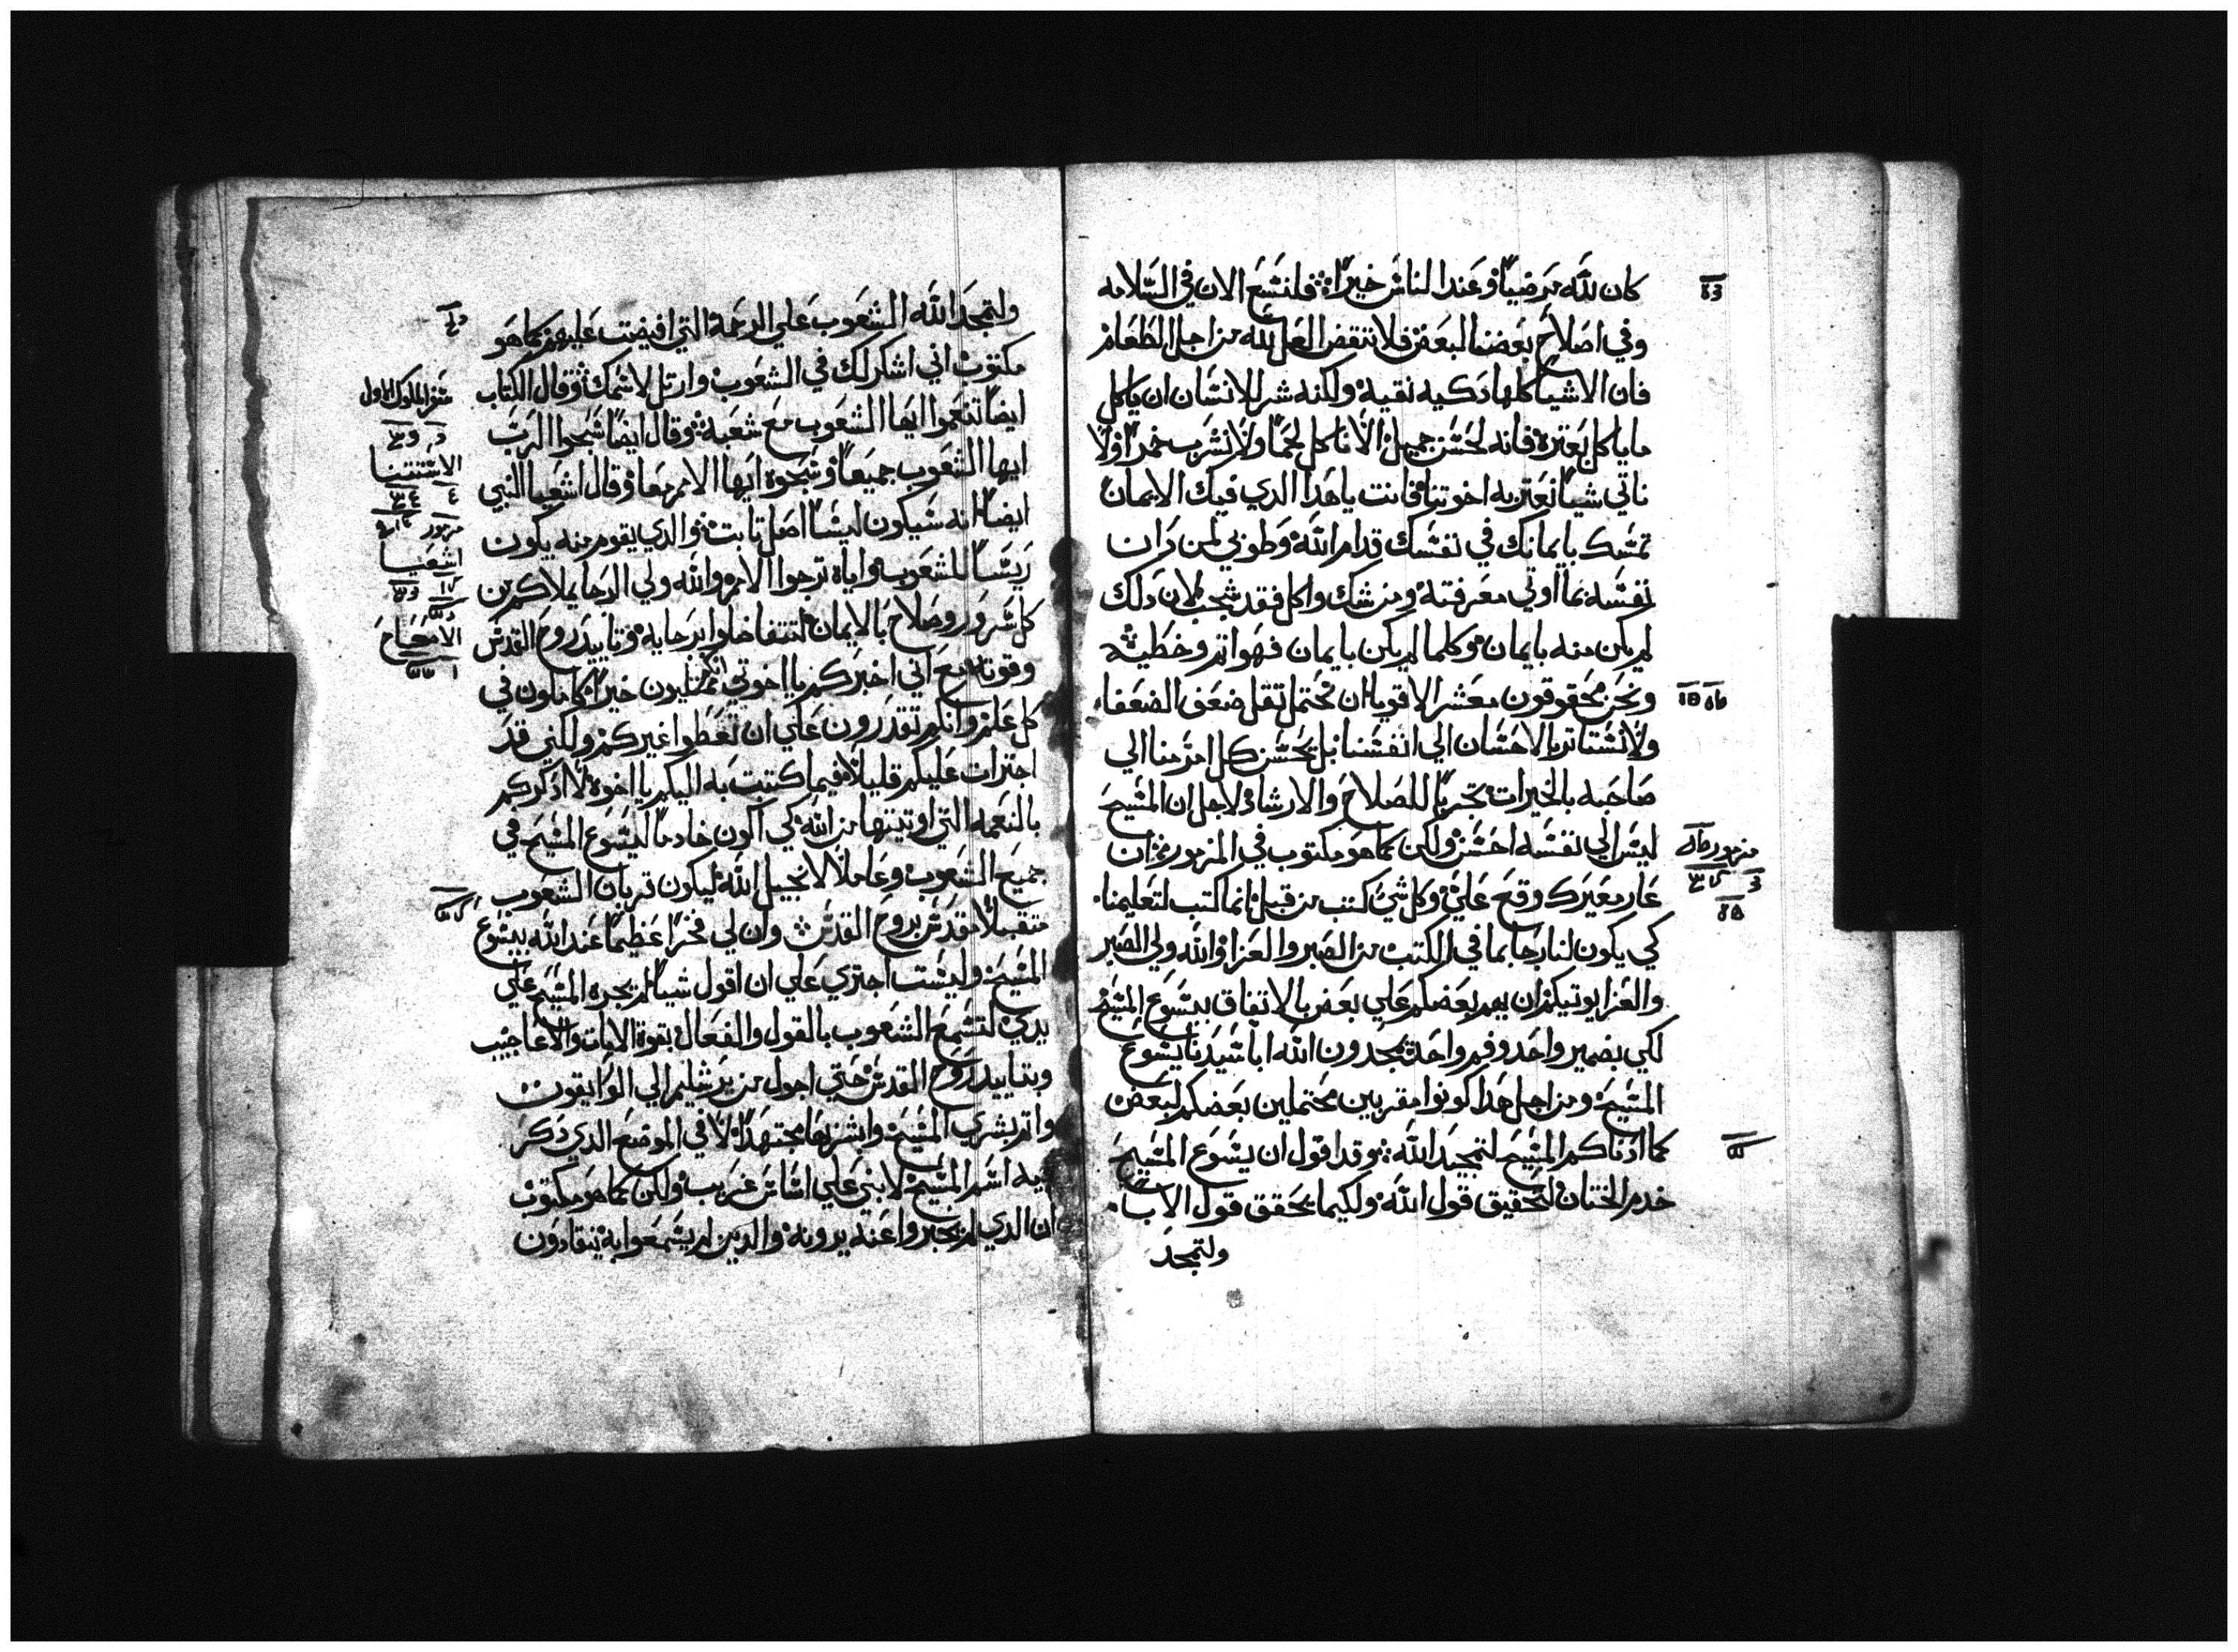 كان لله مرضيا وعند الناس خيرا فلنسع الان في السلامه
وفي اصلاح بعضنا البعض فلا ننقض العمل لله من اجل الطعام
فان الاشيا كلها دكيه نقيه ولكنه شر للانسان ان ياكل
ماياكل بعتره فانه لحسن جميل الا ناكل لحما ولا نشرب خمرا ولا
ناتي شيا نعتر به اخوتنا فانت ياهدا الدي فيك الايمان
تمسك بايمانك في نفسك قدام الله وطوبي لمن دان
نفسه بما اوتي معرفته ومن شك واكل فقد شجب لان دلك
لم يكن منه بايمان وكلما لم يكن بايمان فهو اتم وخطيه
ونحن محقوقون معشر الاقويا ان نحتمل تقل ضعف الضعفا
ولا نستاتر بالاحسان الي انفسنا بل يحسن كل امر منا الي
صاحبه بالخيرات تحريا للصلاح والارشاد لاجل ان المسيح
ليس الي نفسه احسن ولكن كما هو مكتوب في المزمور ان
عار معيرك وقع علي وكل شي كتب من قبل انما كتب لتعليمنا
كي يكون لنا رجا بما في الكتب من الصبر والعزا والله ولي الصبر
والعزا يوتيكم ان يهم بعضكم علي بعض بالاتفاق بيسوع المسيح
لكي بضمير واحد وفم واحد تمجدون الله ابا سيدنا يسوع
المسيح ومن اجل هدا كونوا مقربين محتملين بعضكم لبعض
كما ادناكم المسيح لتمجيد الله وقد اقول ان يسوع المسيح
خدم الختان لتحقيق قول الله ولكيما يحقق قول الاب
ولتمجد
مزمور
ولتمجد الله الشعوب علي الرحمة التي افيضت عليهم كما هو
مكتوب اني اشكر لك في الشعوب وارتل لاسمك وقال الكتاب
ايضا تنعموا ايها الشعوب مع شعبه وقال ايضا سبحوا الرب
ايها الشعوب جميعا وسبحوه ايها الامم معا وقال اشعيا النبي
ايضا انه سيكون ليسا اصل تابت والدي يقوم منه يكون
ريسا للشعوب واياه ترجوا الامم والله ولي الرجا يملاكم من
كل سرور وصلاح بالايمان لتتفاضلوا برجايه وتاييد روح القدس
وقوته مع اني اخبركم يا اخوتي انكم ممتليون خيرا كاملون في
كل علم وانكم تقدرون علي ان تعظوا غيركم ولكني قد
اجترات عليكم قليلا فيما كتبت به اليكم يا اخوه لا ادكركم
بالنعمه التي اوتيتها من الله كي اكون خادما ليسوع المسيح في
جميع الشعوب وعاملا لانجيل الله ليكون قربان الشعوب
متقبلا مقدس بروح القدس وان لي فخرا عظيما عند الله بيسوع
المسيح وليست اجتري علي ان اقول شيا لم يجره المسيح علي
يدي لتسمع الشعوب بالقول والفعال بقوة الايات والاعاجيب
وبتاييد روح القدس حتي اجول من يرشليم الي الوابيقون
واتم بشري المسيح وابشر بها مجتهدا لا في الموضع الدي دكر
فيه اسم المسيح لا ابني علي اساس غريب ولكن كما هو مكتوب
ان الدي لم يخبروا عنه يرونه والدين لم يسمعوا به ينقادون
سفر الملوك الاول
الاستتنا
مزمور
اشعيا
الاصحاح